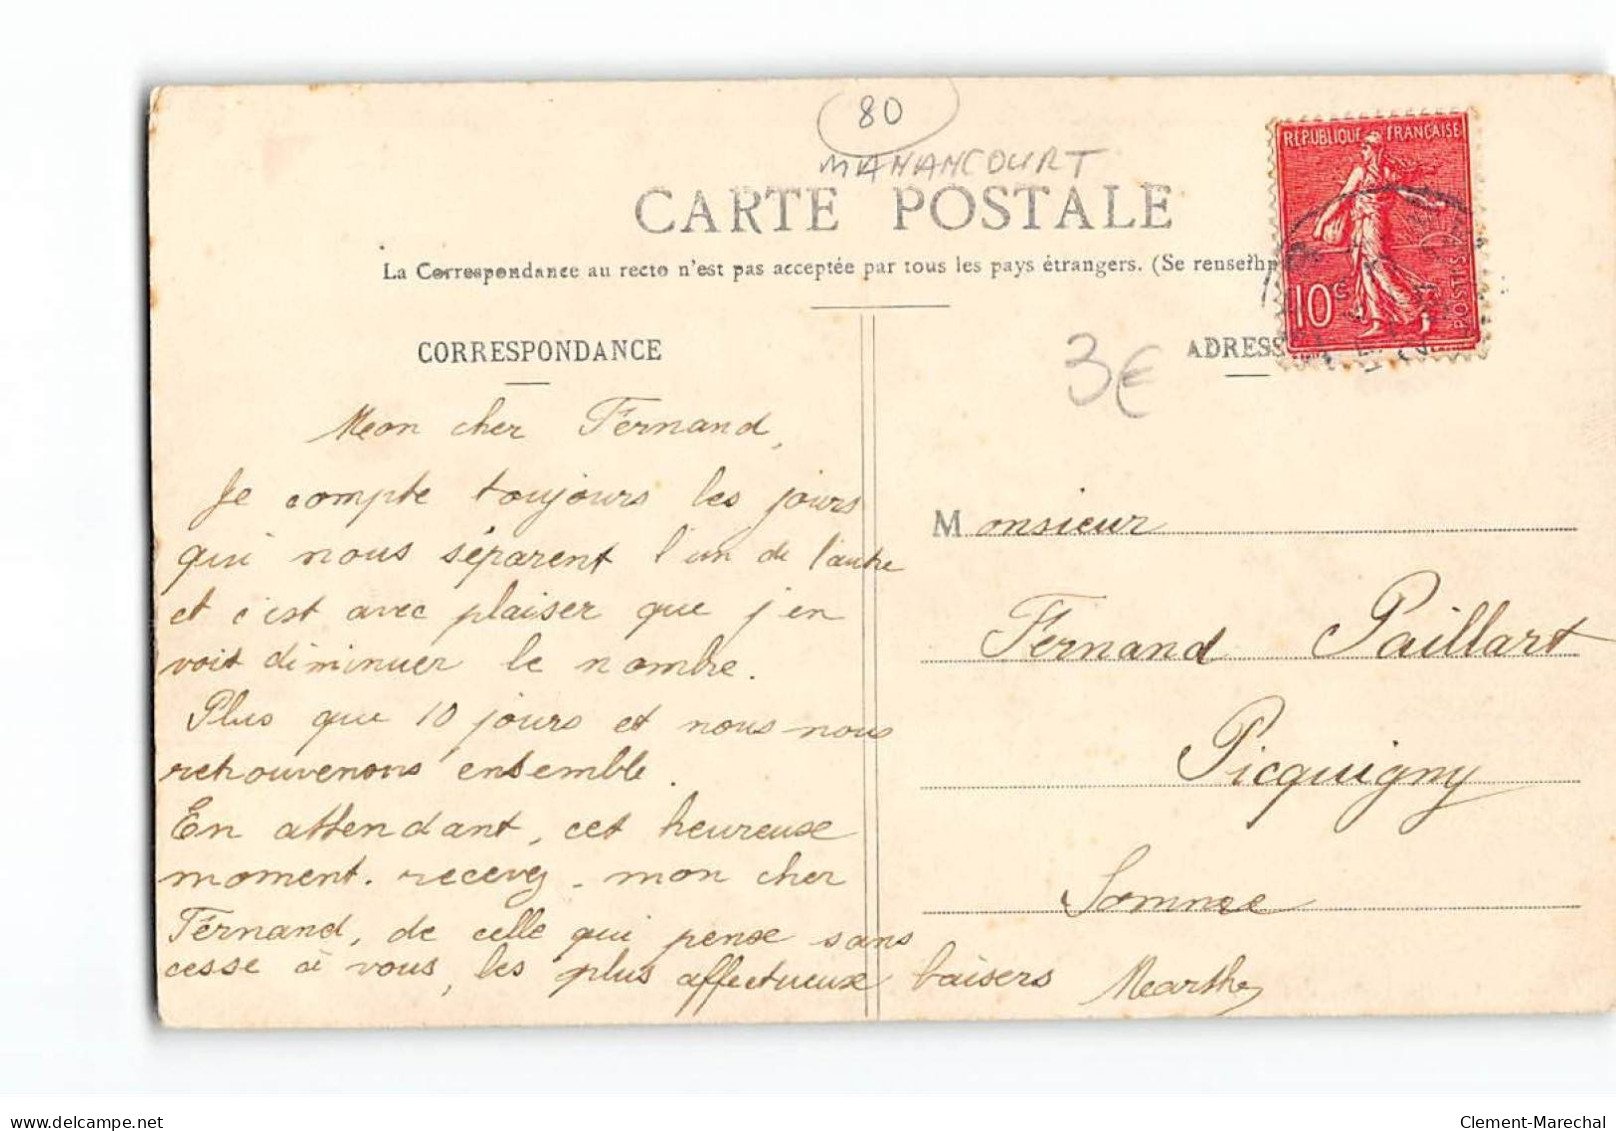 80
MANANCOURT
CARTE POSTALE
La Correspondance au recto n'est pas acceptée par tous les pays étrangers. (Se
REPUBLIQUE FRANÇAISE
10
POSTES
CORRESPONDANCE
3€
ADRESS
Mon cher Fernand,
Je compte toujours les jours
qui nous séparent l'un de l'autre
et c'est avec plaiser que j'en
voit diminuer le nombre.
Plus que 10 jours et nous nous
retrouvenons ensemble.
En attendant, cet heureuse
moment. recevez, mon cher
Fernand, de celle qui pense sans
cesse à vous, les plus affectueux baisers Marthe
Monsieur
Fernand Paillart
Picquigny
Somme
delcampe.net
Clement-Marechal